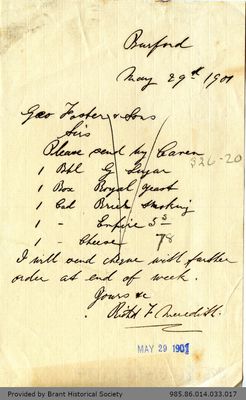 Burford
May 29th 1901
Geo Foster & Sons
Sirs
Please send by Caven
326-20
1 Bbl G Sugar
1 Box Royal yeast
1 Cad Brier Smoking
1 - Empire 55
1 - Cheese 78
I will send cheque with further
order at end of week.
Yours &c
Richd F. Meredith.
MAY 29 1901
Provided by Brant Historical Society
985.86.014.033.017